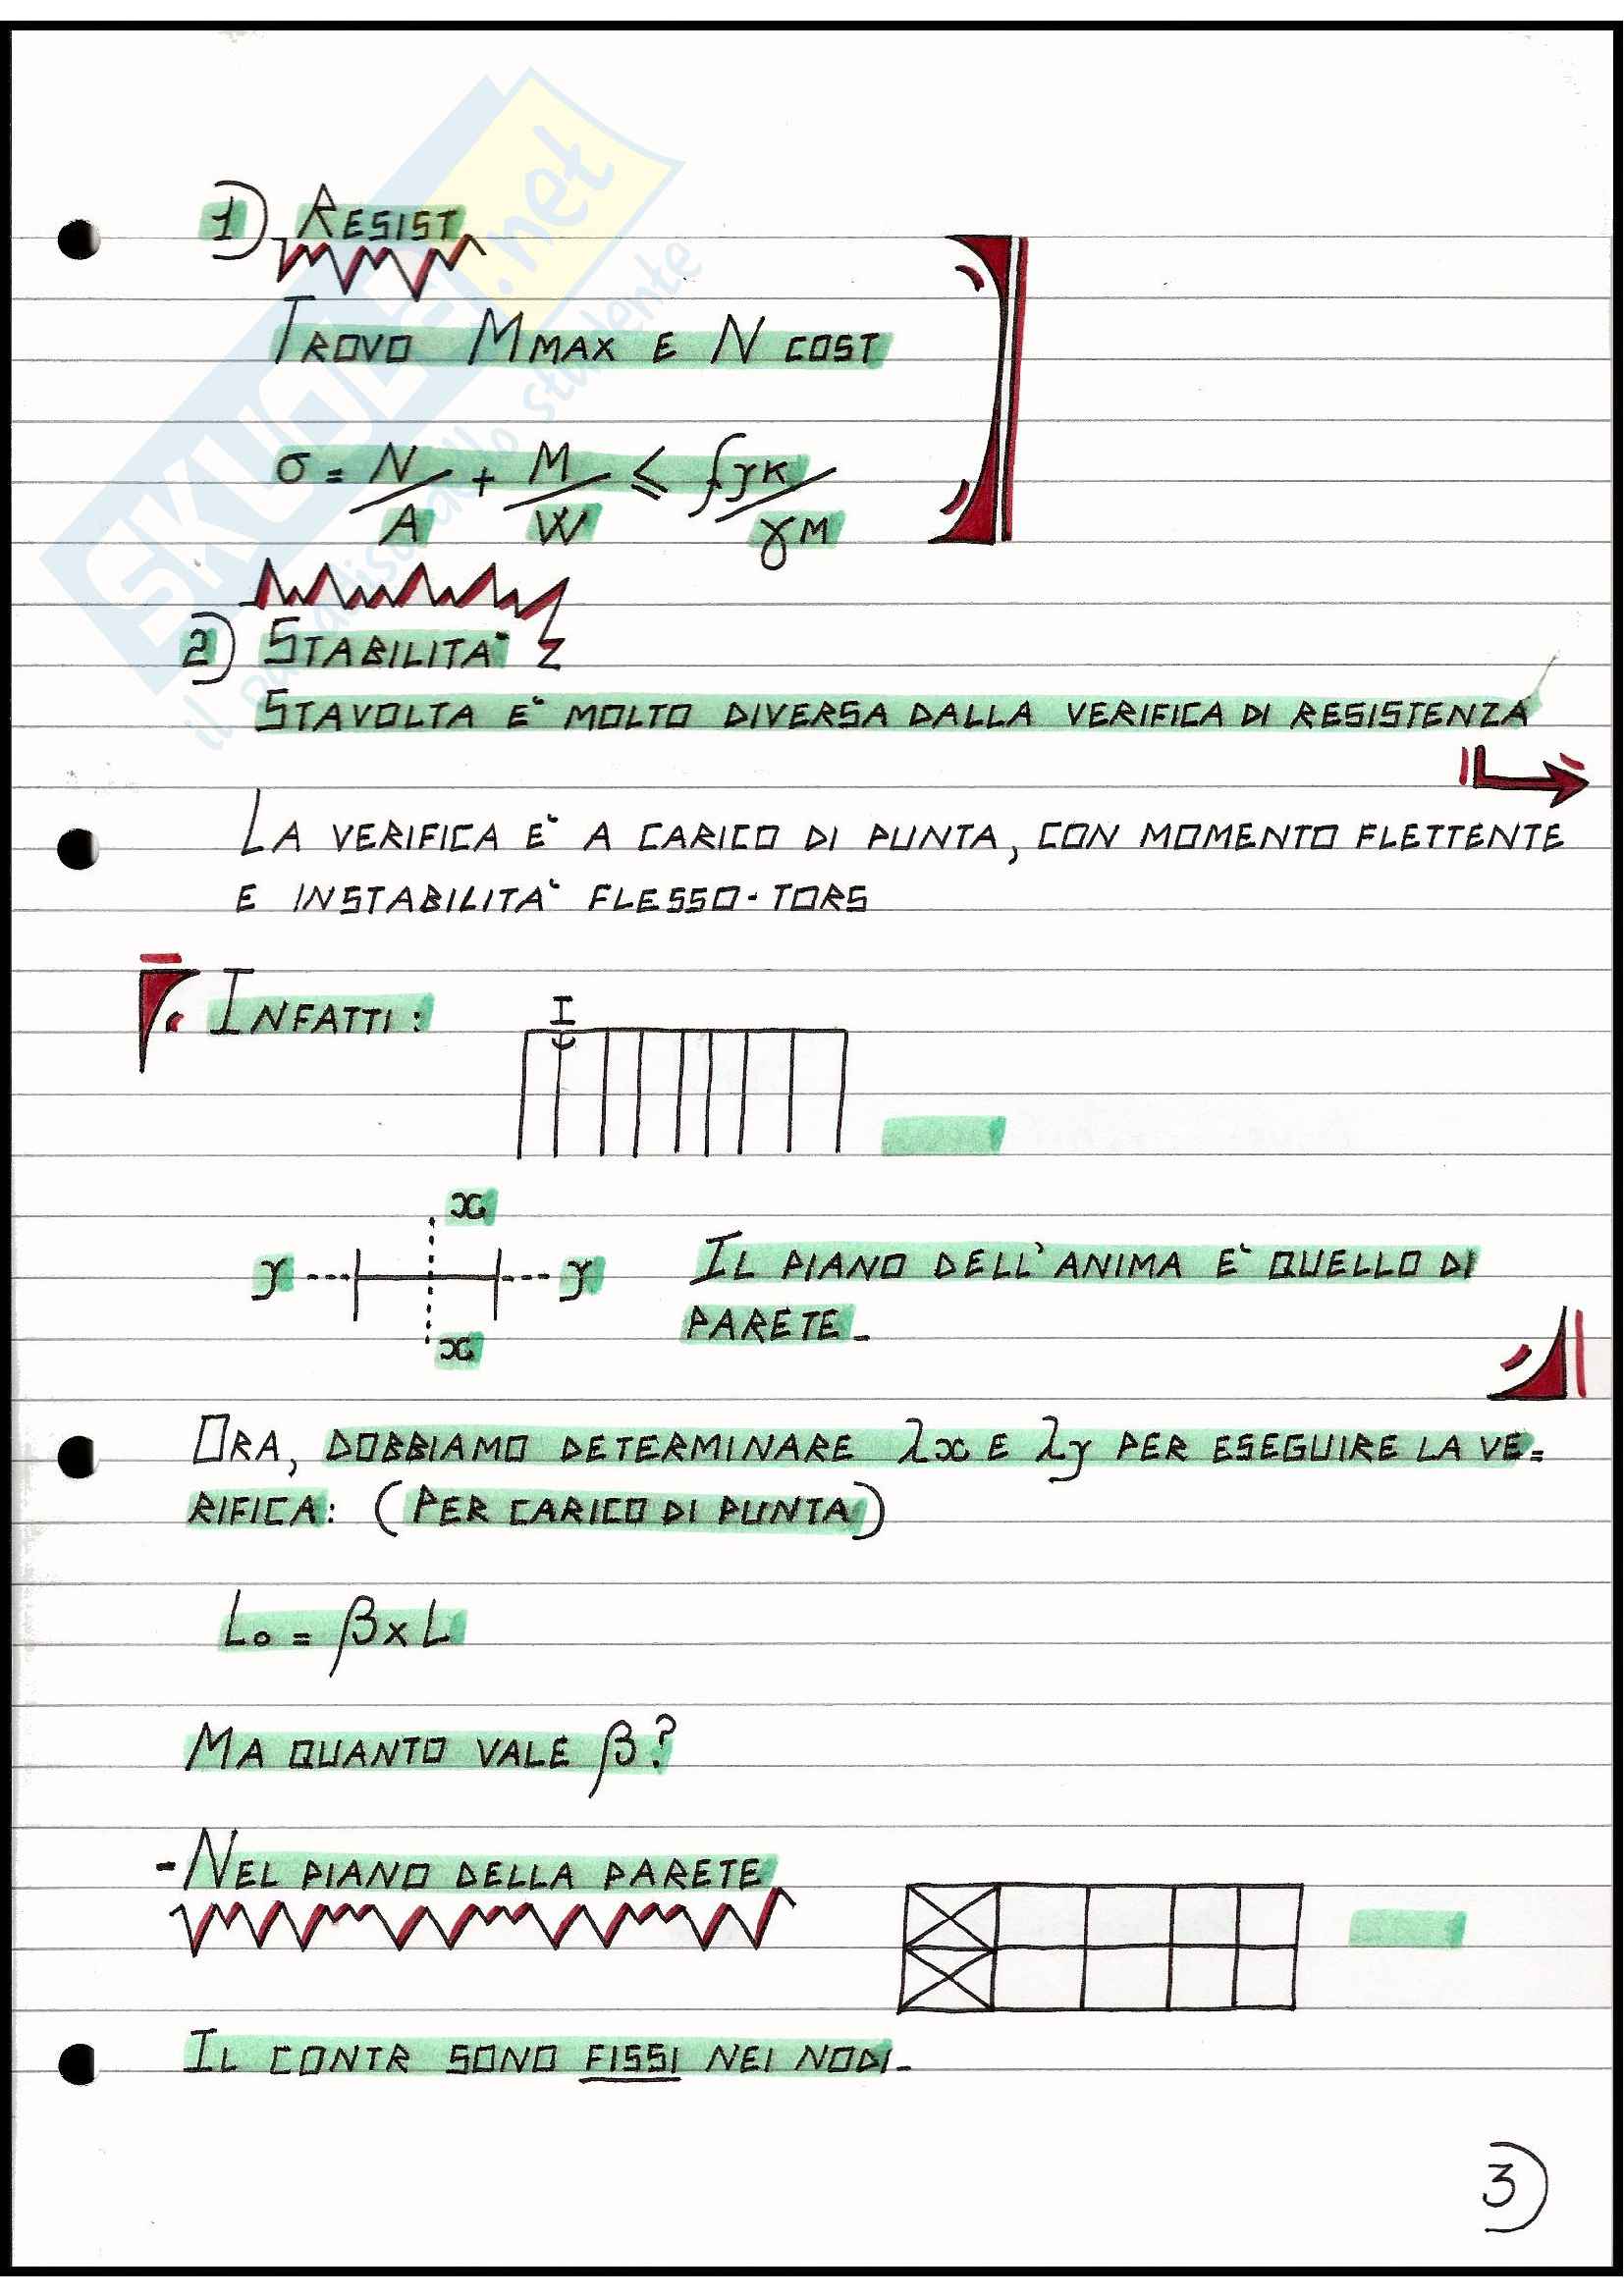 1) RESIST
TROVO MMAX E N COST
σ = N/A + M/W ≤ fyk/γM
2) STABILITA'
STAVOLTA E' MOLTO DIVERSA DALLA VERIFICA DI RESISTENZA
LA VERIFICA E' A CARICO DI PUNTA, CON MOMENTO FLETTENTE
E INSTABILITA' FLESSO-TORS
INFATTI:
I
x
y y
x
IL PIANO DELL'ANIMA E' QUELLO DI
PARETE.
ORA, DOBBIAMO DETERMINARE λx E λy PER ESEGUIRE LA VE=
RIFICA: (PER CARICO DI PUNTA)
L0 = β x L
MA QUANTO VALE β?
- NEL PIANO DELLA PARETE
IL CONTR SONO FISSI NEI NODI.
3)
SKUOLA.net
il paradiso dello studente